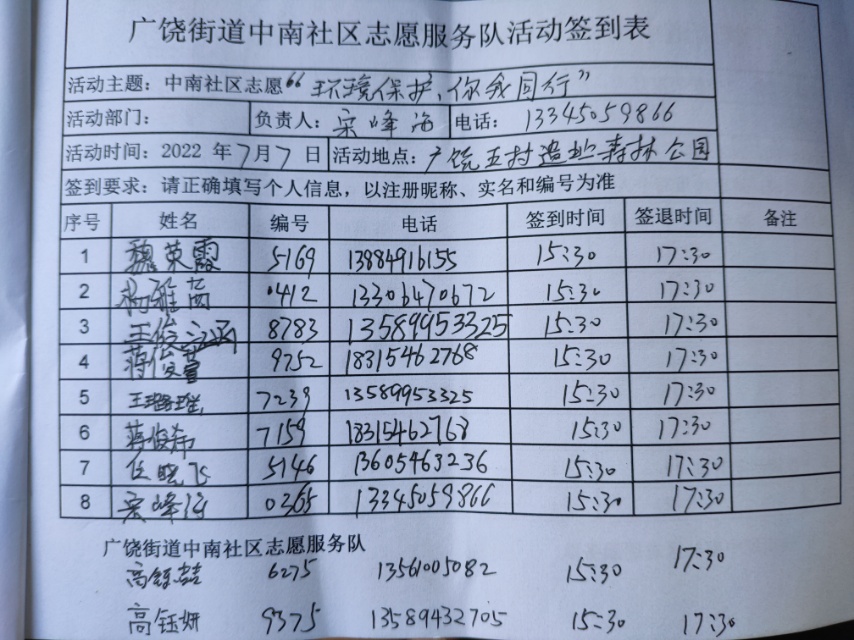 广饶街道中南社区志愿服务队活动签到表
活动主题：中南社区志愿“环境保护、你我同行”
活动部门： 负责人：宋峰海 电话：13345059866
活动时间：2022 年7月7日 活动地点：广饶五村遗址森林公园
签到要求：请正确填写个人信息，以注册昵称、实名和编号为准
序号 姓名 编号 电话 签到时间 签退时间 备注
1 魏荣霞 5169 13884916155 15:30 17:30
2 杨雅茜 0412 13306470672 15:30 17:30
3 王俊涵 8783 13589953325 15:30 17:30
4 蒋俊萱 9752 18315462768 15:30 17:30
5 7239 13589953325 15:30 17:30
6 蒋俊希 7159 18315462768 15:30 17:30
7 任晓飞 5146 13605463236 15:30 17:30
8 宋峰海 0365 13345059866 15:30 17:30
广饶街道中南社区志愿服务队
高 喆 6275 13561005082 15:30 17:30
高钰妍 9375 13589432705 15:30 17:30